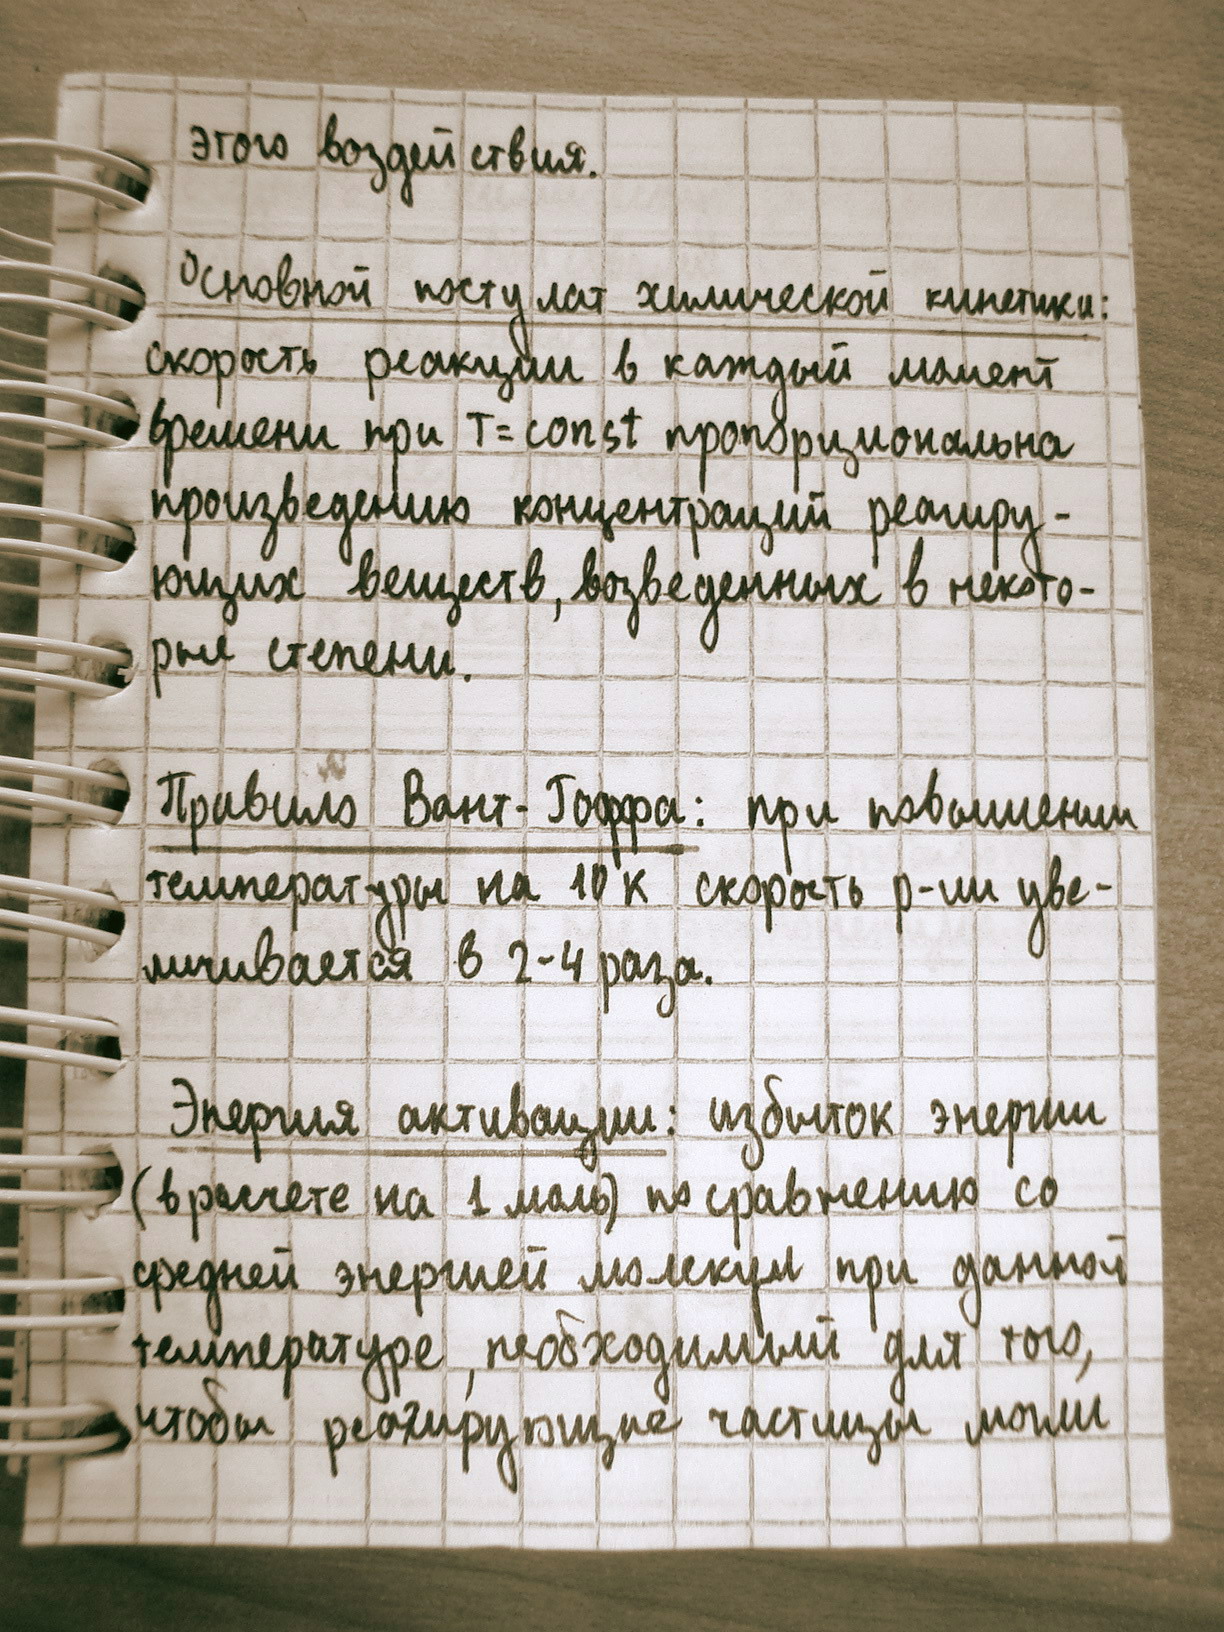 этого воздействия.
Основной постулат химической кинетики:
скорость реакции в каждый момент
времени при T=const пропорциональна
произведению концентраций реагиру-
ющих веществ, возведенных в некото-
рые степени.
Правило Вант-Гоффа: при повышении
температуры на 10 К скорость р-ии уве-
личивается в 2-4 раза.
Энергия активации: избыток энергии
(в расчете на 1 моль) по сравнению со
средней энергией молекул при данной
температуре, необходимый для того,
чтобы реагирующие частицы могли